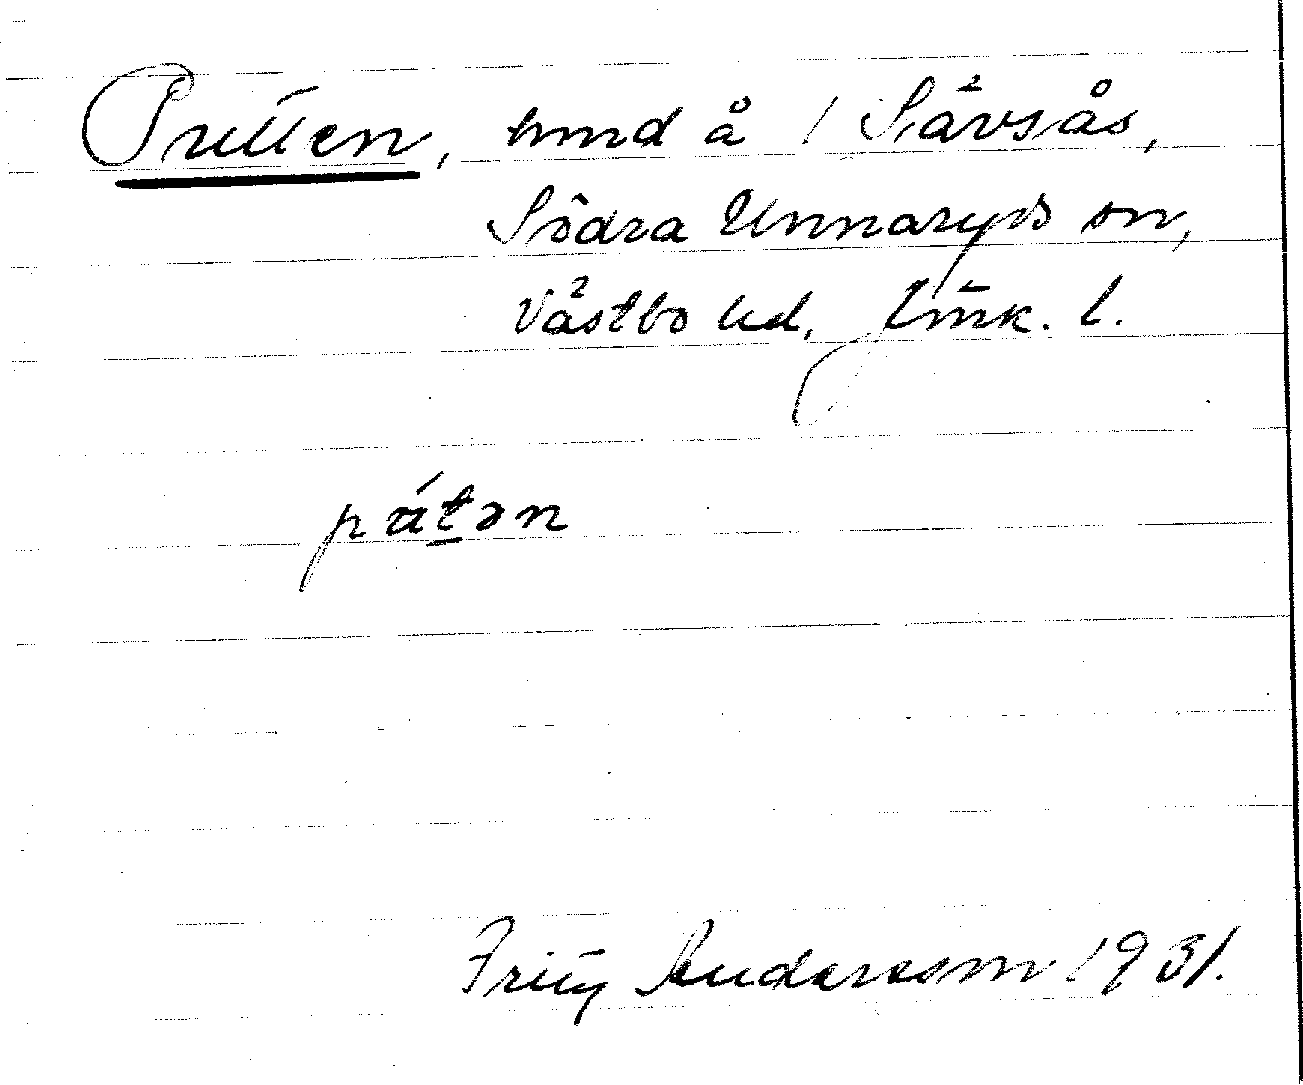 Putten, hund å 1 Sävsås,
Södra Unnaryds sn,
Västbo hd, Jönk. l.
pútən
Fritz Andersson 1931.